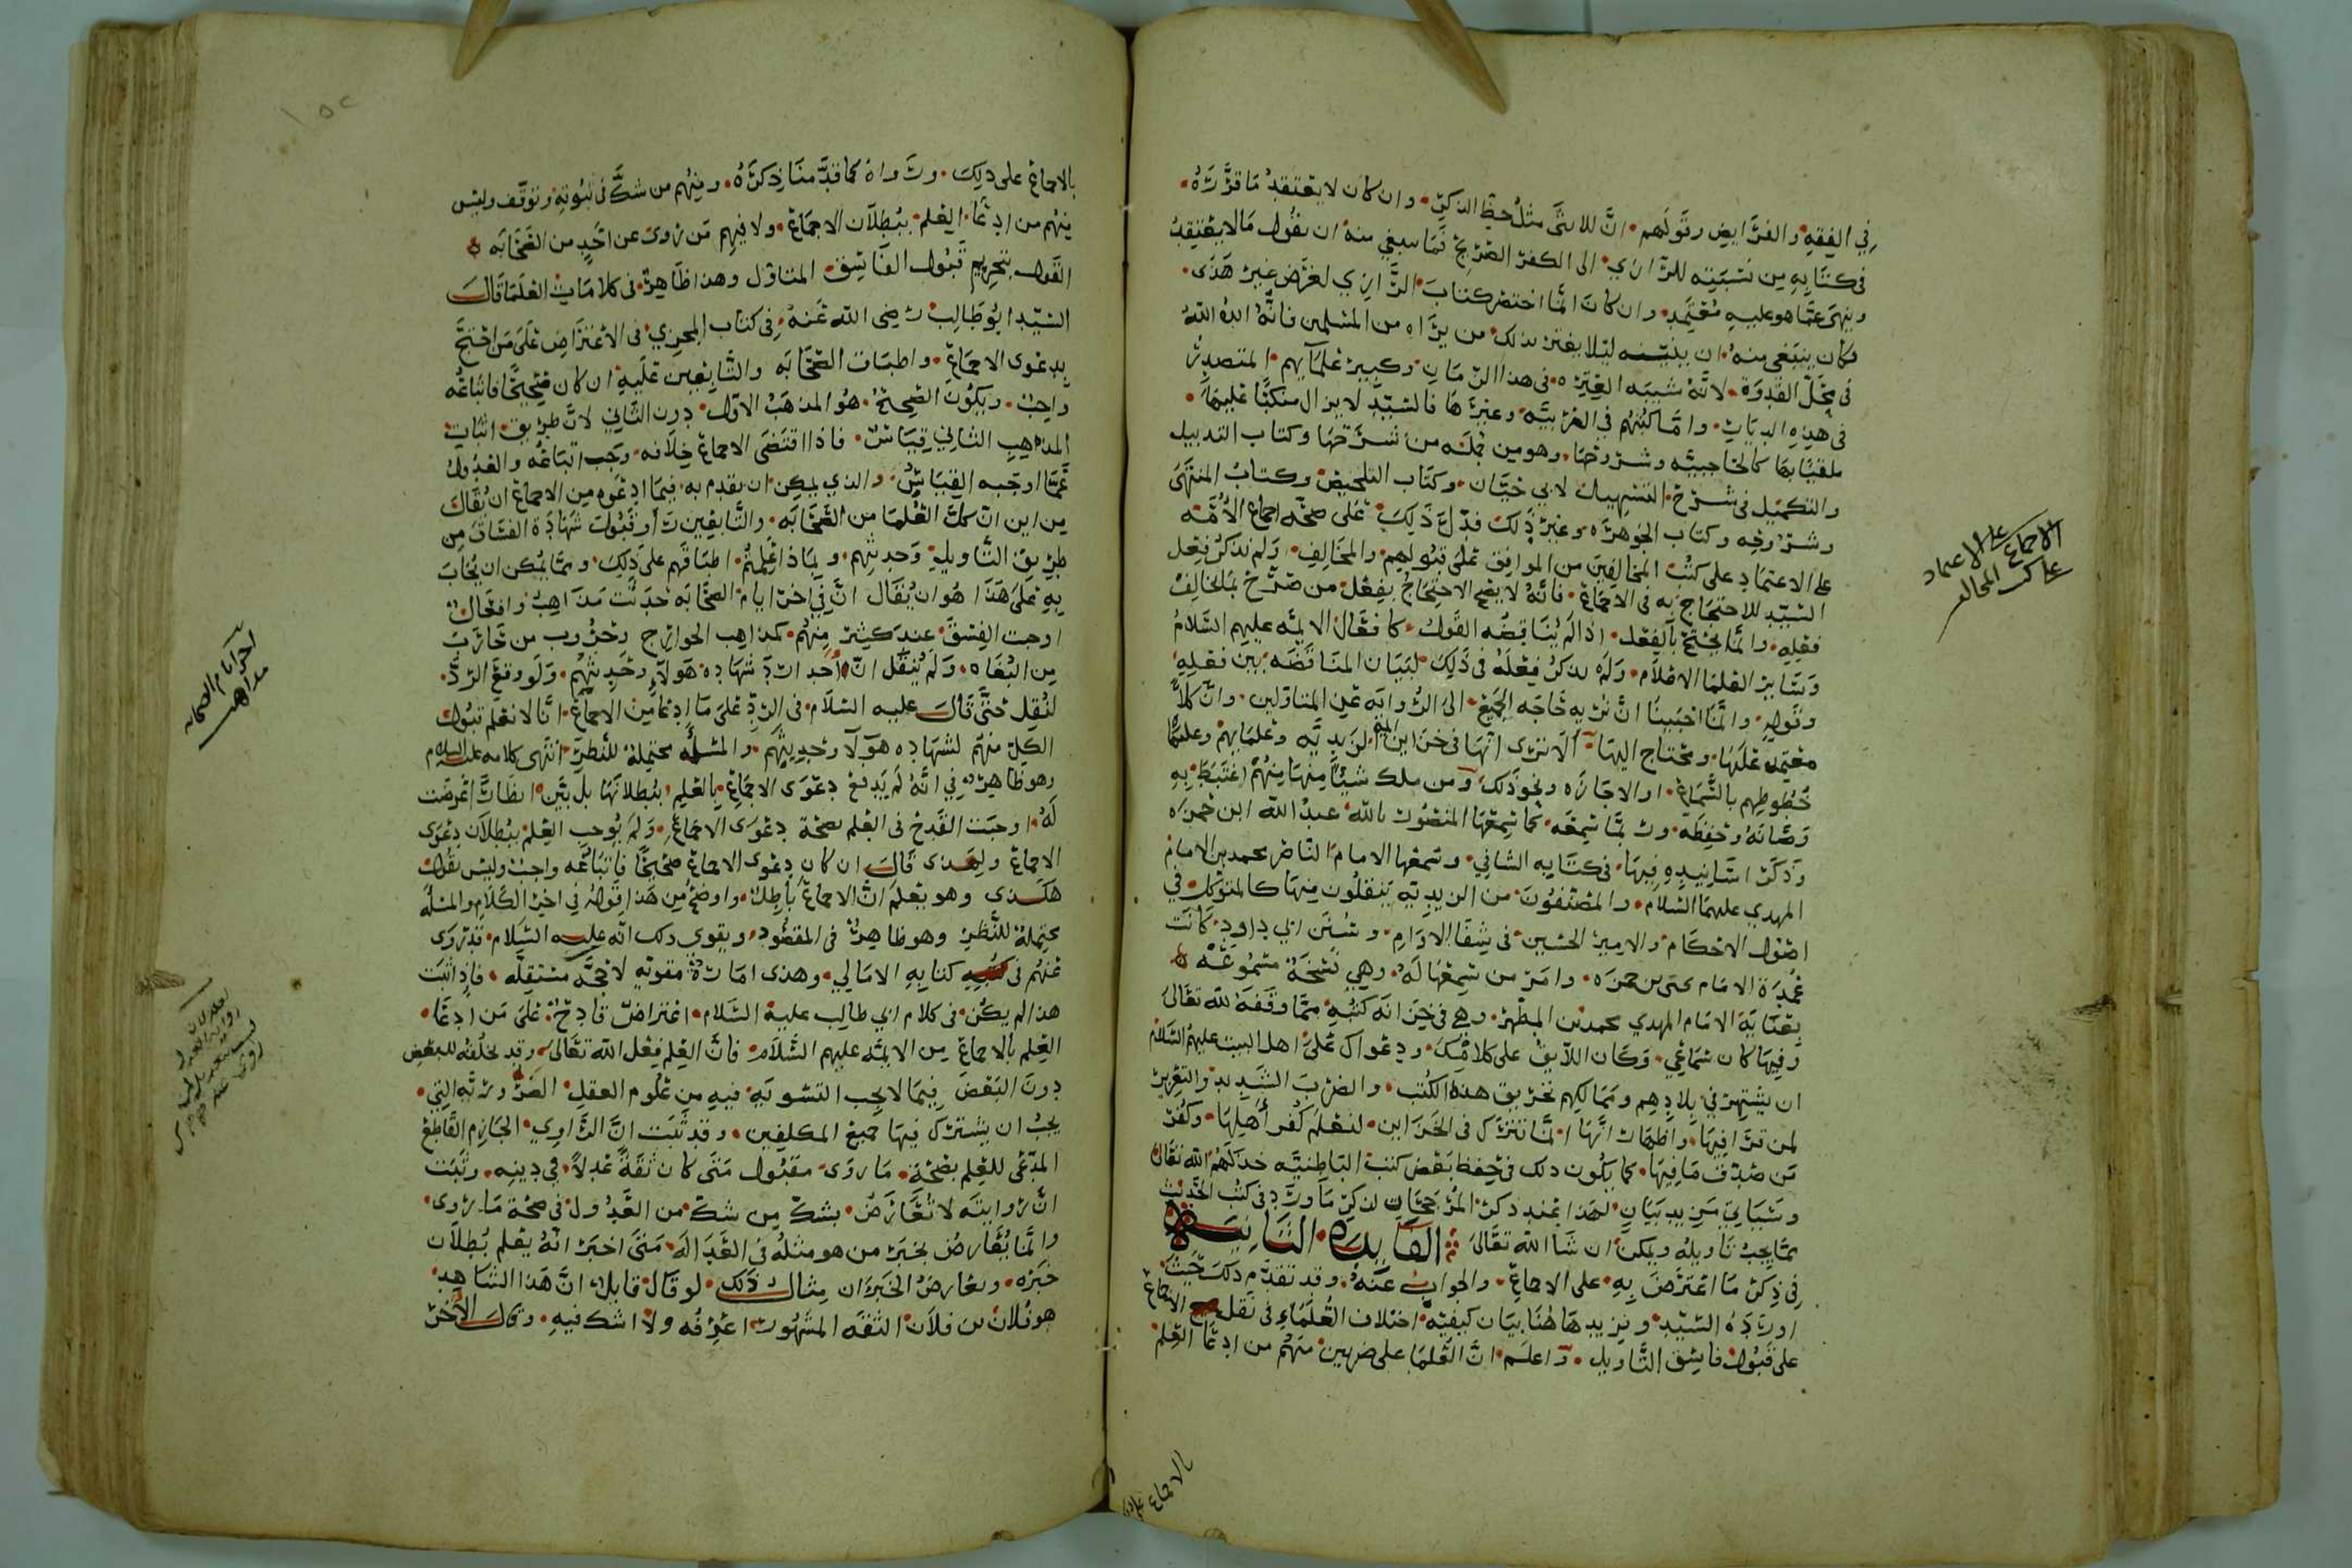 في الفقه والفرايض وقولهم ان للانثى مثل حظ الذكر وان كان لا يعتقد ما قرره
في كتابه من نسبته للرازي الى الكفر الصريح فما ينبغي منه ان يقول ما لا يعتقد
وينهى عما هو عليه معتمد وان كان انما اختصر كتاب الرازي لغرض غير هذى
فكان ينبغي منه ان يبينه ليلا يغتر بذلك من يراه من المسلمين فانه ايده الله
في محل القدوة لانه شيبه العتره في هذا الزمان وكبير علمآيهم المتصدر
في هذه الديار واما كتبهم في العربيه وغيرها فالسيد لا يزال منكبا عليها
ملقنا بها كالحاجبيه وشروحها وهو من جمله من شرحها وكتاب التذييل
والتكميل في شرح التسهيل لابي حيان وكتاب التلخيص وكتاب المنتهى
وشروحه وكتاب الجوهره وغير ذلك فدل ذلك على صحه اجماع الأمه
على الاعتماد على كتب المخالفين من الموافق على قبولهم والمخالف ولم نذكر فعل
السيد للاحتجاج به في الاجماع فانه لا يصح الاحتجاج بفعل من صرح بمخالفة
فعله وانما يحتج بالفعل اذا لم يناقضه القول كافعال الايمه عليهم السلام
وساير العلما الاعلام ولم نذكر فعله في ذلك لبيان المناقضه بين فعله
وقوله وانما احببنا ان نريه حاجه الجميع الى الروايه عن المتاولين وان كلا
معتمد عليها ومحتاج اليها ألا ترى انها في خزاين ايمة الزيديه وعلمايهم وعليها
خطوطهم بالسماع او الاجازه ونحو ذلك ومن ملك شيئا منها منهم اغتبط به
وصانه وحفظه وربما سمعه كما سمعها المنصور بالله عبد الله ابن حمزه
وذكر اسانيده فيها في كتابه الشافي وسمعها الامام الناصر محمد بن الامام
المهدي عليهما السلام والمصنفون من الزيديه ينقلون منها كالمتوكل في
اصول الاحكام والامير الحسين في شفا الاوام وسنن ابي داود كانت
عمدة الامام يحيى بن حمزه وامر من سمعها له وهي نسخة مسموعه
بعناية الامام المهدي محمد بن المطهر وهي في خزانه كتبه مما وقفه لله تعالى
وفيها كان سماعي وكان اللايق على كلامك ودعواك على اهل البيت عليهم السلام
ان يشتهر في بلادهم وممالكهم تحريق هذه الكتب والضرب الشديد والتعزير
لمن قرا فيها واظهار انها انما تترك في الخزاين لنعلم كفر اهلها وكفر
من صدق ما فيها كما يكون ذلك في حفظ بعض كتب الباطنيه خذلهم الله تعالى
وسياتي مزيد بيان لهذا عند ذكر المرجحات لذكر ما ورد في كتب الحديث
مما يجب تاويله ويمكن ان شا الله تعالى الفايده الثانيه
في ذكر ما اعترض به على الاجماع والجواب عنه وقد تقدم ذلك حيث
اورده السيد ونزيدها هنا بيان كيفية اختلاف العلماء في نقل الاجماع
على قبول فاسق التاويل واعلم ان العلما على ضربين منهم من ادعا العلم
بالاجماع على
الاجماع على الاعتماد
على كتب المخالف
بالاجماع على ذلك ورواه كما قدمنا ذكره ومنهم من شك في ثبوته وتوقف وليس
منهم من ادعا العلم ببطلان الاجماع ولا فيهم من روى عن احد من الصحابه
القول بتحريم قبول الفاسق المتاول وهذا ظاهر في كلامات العلما قال
السيد ابو طالب رضى الله عنه في كتاب المجزي في الاعتراض على من احتج
بدعوى الاجماع واطباق الصحابه والتابعين عليه ان كان صحيحا فاتباعه
واجب ويكون الصحيح هو المذهب الاول دون الثاني لان طريق اثبات
المذهب الثاني قياس فاذا اقتضى الاجماع خلافه وجب اتباعه والعدول
عما اوجبه القياس والذي يمكن ان يقدم به فيما ادعوه من الاجماع ان يقال
من اين ان كل العلما من الصحابه والتابعين رأوا قبول شهادة الفساق من
طريق التاويل وحديثهم وبماذا علمتم اطباقهم على ذلك ومما يمكن ان يجاب
به على هذا هو ان يقال ان في اخر ايام الصحابه حدثت مذاهب وافعال
اوجبت الفسق عند كثير منهم كمذاهب الخوارج وحروب من حارب
من البغاه ولم ينقل ان احدا رد شهاده هولاء وحديثهم ولو وقع الرد
لنقل حتى قال عليه السلام في الرد على ما ادعا من الاجماع انا لا نعلم قبول
الكل منهم لشهاده هولا وحديثهم والمسئله محتملة للنظر انتهى كلامه عليه السلام
وهو ظاهر في انه لم يدفع دعوى الاجماع بالعلم ببطلانها بل بين انظارا عرضت
له اوجبت القدح في العلم بصحة دعوى الاجماع ولم يوجب العلم ببطلان دعوى
الاجماع ولهذى قال ان كان دعوى الاجماع صحيحا فاتباعه واجب وليس يقول
هكذى وهو يعلم ان الاجماع باطل واوضح من هذا قوله في اخر الكلام والمسئله
محتملة للنظر وهو ظاهر في المقصود ويقوي ذلك انه عليه السلام قد روى
عنهم في كتابه الامالي وهذى امارة مقويه لا حجه مستقله فاذا ثبت
هذا لم يكن في كلام ابي طالب عليه السلام اعتراض قادح على من ادعا
العلم بالاجماع من الايمه عليهم السلام فان العلم فعل الله تعالى وقد يخلقه للبعض
دون البعض فيما لا يجب التسويه فيه من علوم العقل الضروريه التي
يجب ان يشترك فيها جميع المكلفين وقد ثبت ان الراوي الجازم القاطع
المدعى للعلم بصحة ما روى مقبول متى كان ثقة عدلا في دينه وثبت
ان روايته لا تعارض بشك من شك من العدول في صحة ما روى
وانما يعارض بخبر من هو مثله في العداله متى اخبر انه يعلم بطلان
خبره وتعارض الخبران مثال ذلك لو قال قايل ان هذا الشاهد
هو فلان بن فلان الثقه المشهور اعرفه ولا اشك فيه وقال الآخر
اخر ايام الصحابه
مذاهب